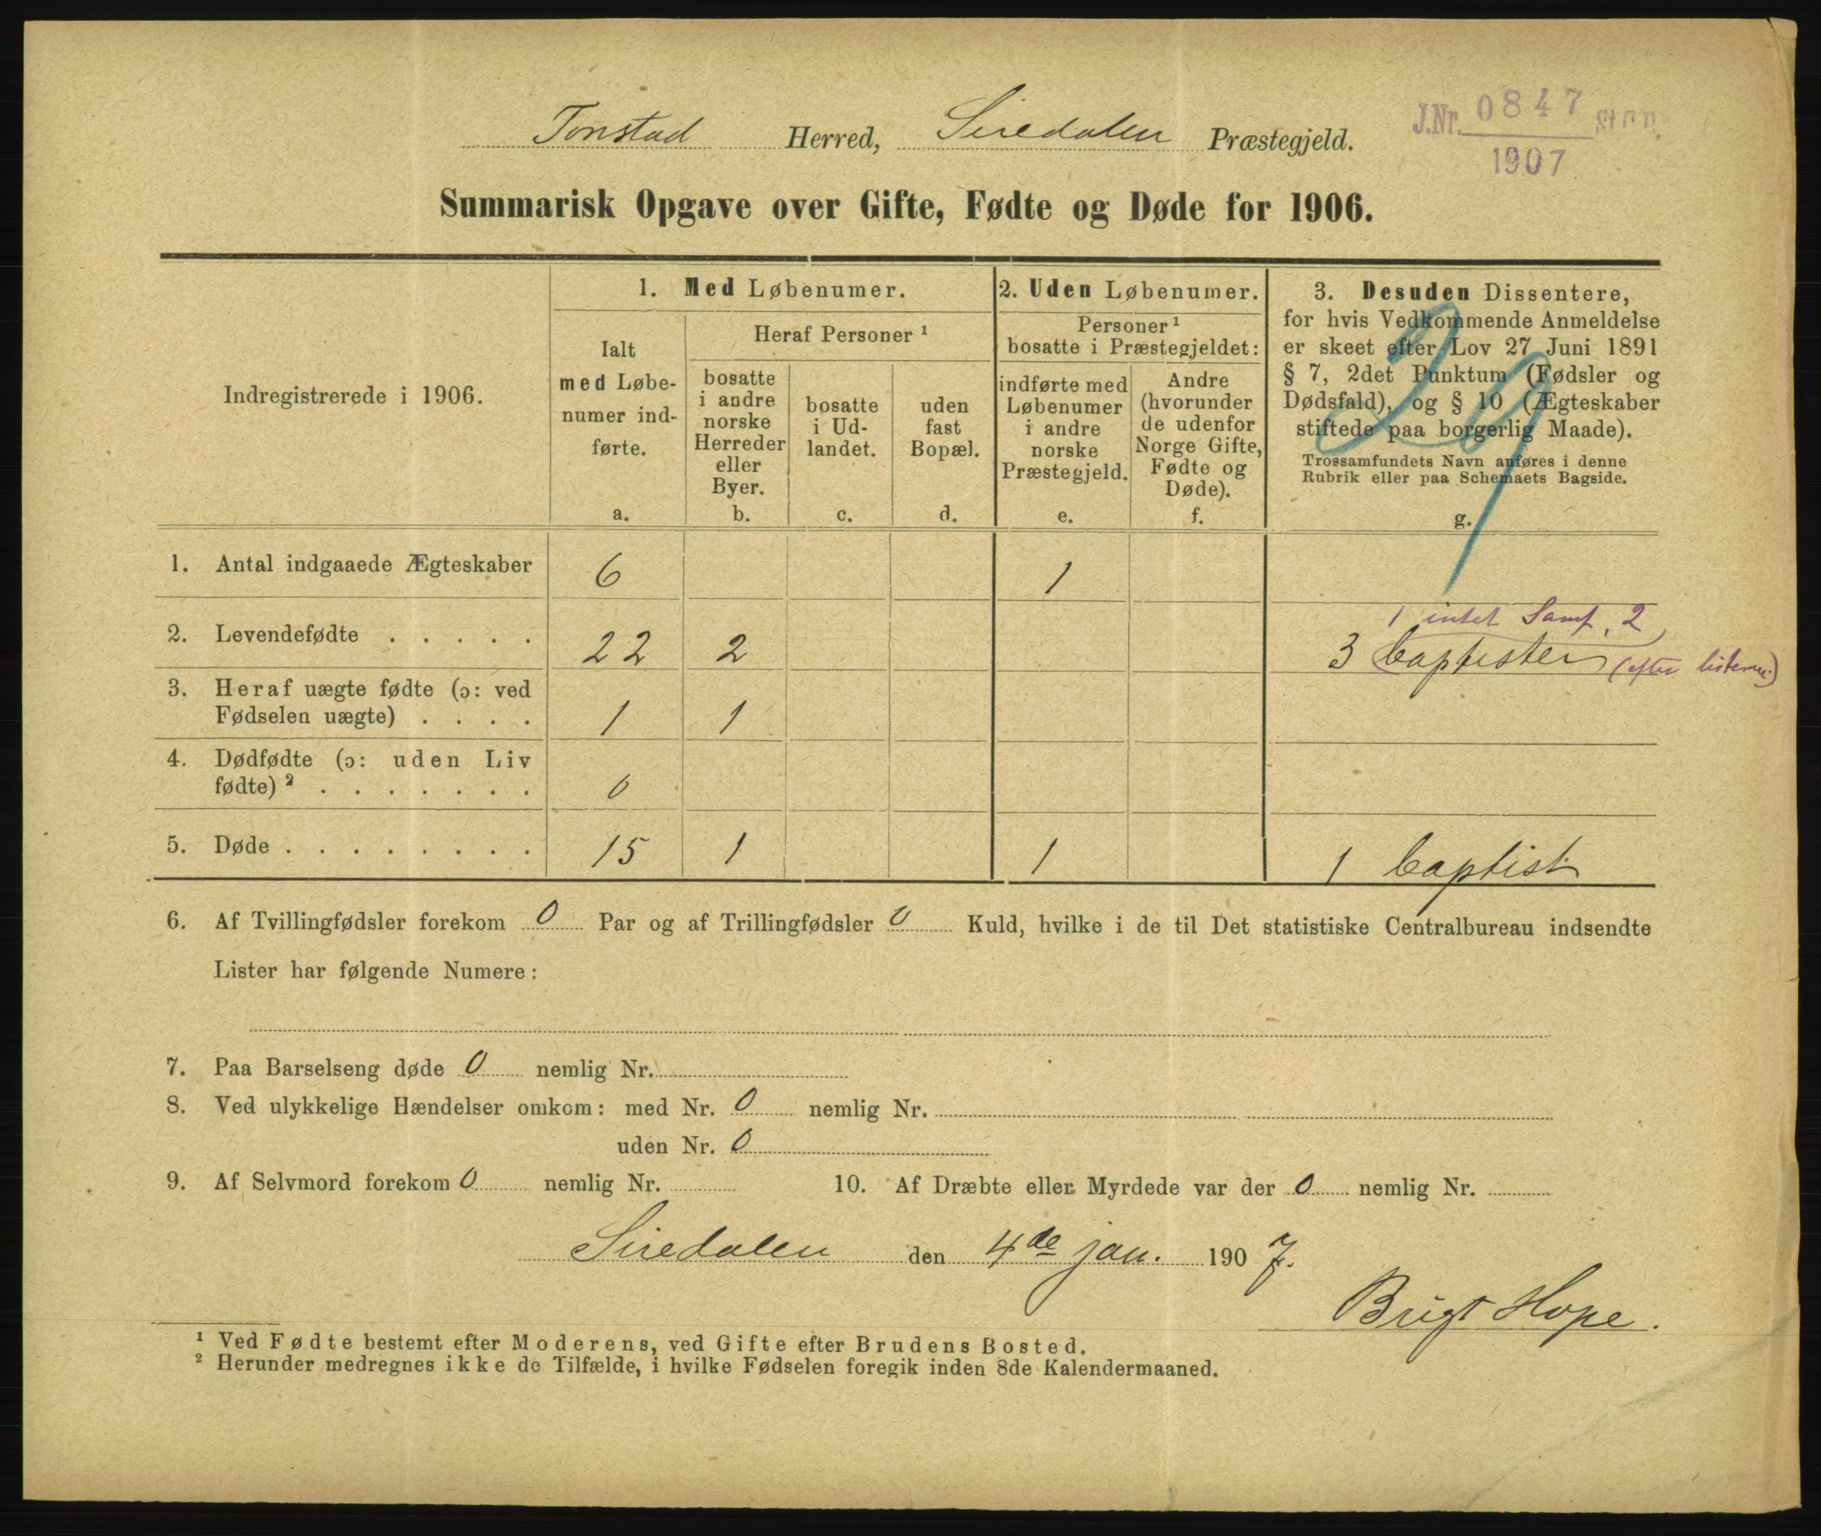 Tonstad Herred, Siredalen Præstegjeld.
J.Nr. 0847 St.C.B.
1907
Summarisk Opgave over Gifte, Fødte og Døde for 1906.
Indregistrerede i 1906.
1. Med Løbenumer.
Ialt
med Løbe-
numer ind-
førte.
a.
Heraf Personer ¹
bosatte
i andre
norske
Herreder
eller
Byer.
b.
bosatte
i Ud-
landet.
c.
uden
fast
Bopæl.
d.
2. Uden Løbenumer.
Personer ¹
bosatte i Præstegjeldet:
indførte med
Løbenumer
i andre
norske
Præstegjeld.
e.
Andre
(hvorunder
de udenfor
Norge Gifte,
Fødte og
Døde).
f.
3. Desuden Dissentere,
for hvis Vedkommende Anmeldelse
er skeet efter Lov 27 Juni 1891
§ 7, 2det Punktum (Fødsler og
Dødsfald), og § 10 (Ægteskaber
stiftede paa borgerlig Maade).
Trossamfundets Navn anføres i denne
Rubrik eller paa Schemaets Bagside.
g.
29
1. Antal indgaaede Ægteskaber 6 1
1 intet Samf, 2
2. Levendefødte . . . . . 22 2 3 baptister (efter listerne)
3. Heraf uægte fødte (ɔ: ved
Fødselen uægte) . . . . 1 1
4. Dødfødte (ɔ: uden Liv
fødte) ² . . . . . . . 0
5. Døde . . . . . . . . 15 1 1 1 baptist
6. Af Tvillingfødsler forekom 0 Par og af Trillingfødsler 0 Kuld, hvilke i de til Det statistiske Centralbureau indsendte
Lister har følgende Numere:
7. Paa Barselseng døde 0 nemlig Nr.
8. Ved ulykkelige Hændelser omkom: med Nr. 0 nemlig Nr.
uden Nr. 0
9. Af Selvmord forekom 0 nemlig Nr. 10. Af Dræbte eller Myrdede var der 0 nemlig Nr.
Siredalen den 4de jan. 1907.
Brigt Hope.
¹ Ved Fødte bestemt efter Moderens, ved Gifte efter Brudens Bosted.
² Herunder medregnes ikke de Tilfælde, i hvilke Fødselen foregik inden 8de Kalendermaaned.